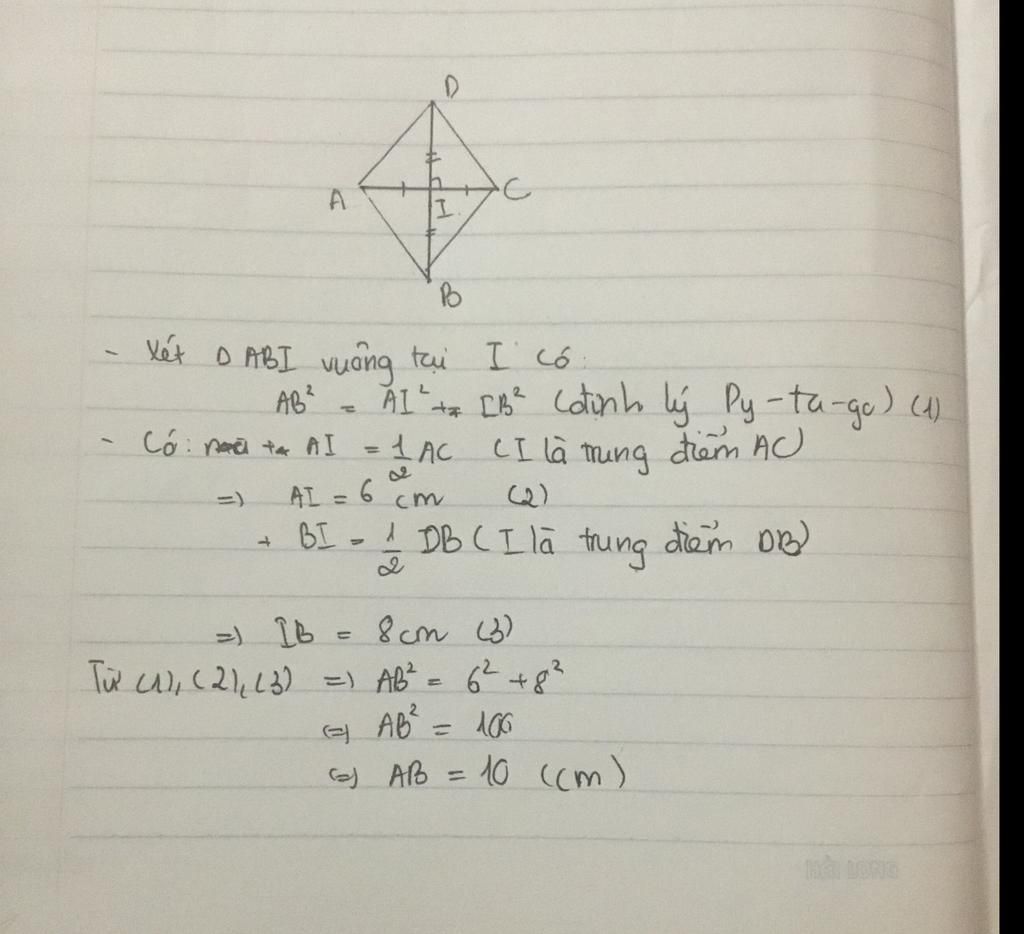 D
A
C
I
B
- Xét Δ ABI vuông tại I có:
AB² = AI² + IB² (định lý Py-ta-go) (1)
- Có: + AI = 1/2 AC (I là trung điểm AC)
=> AI = 6 cm (2)
+ BI = 1/2 DB (I là trung điểm DB)
=> IB = 8cm (3)
Từ (1), (2), (3) => AB² = 6² + 8²
<=> AB² = 100
<=> AB = 10 (cm)
HẢI LONG